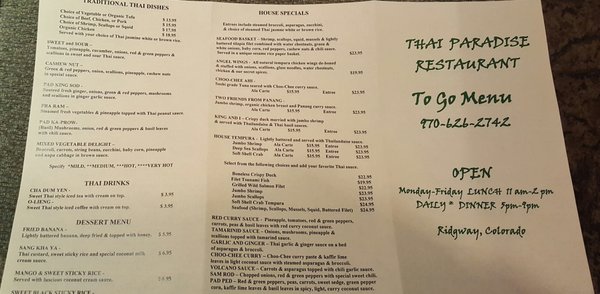 TRADITIONAL THAI DISHES
Choice of Vegetable or Organic Tofu $ 13.95
Choice of Beef, Chicken, or Pork $ 15.95
Choice of Shrimp, Scallops or Squid
Organic Chicken
Served with your choice of Thai jasmine white or brown rice.
SWEET and SOUR -
Tomatoes, pineapple, cucumber, onions, red & green peppers &
onions in sweet and sour Thai sauce.
CASHEW NUT -
Green & red peppers, onion, scallions, pineapple, cashew nuts
in special sauce.
PAD KING SOD -
Sauteed fresh ginger, onions, green & red peppers, mushrooms
and scallions in ginger garlic sauce.
THA RAM -
Steamed fresh vegetables & pineapple topped with Thai peanut sauce.
PAD KA PROW-
(Basil) Mushrooms, onion, red & green peppers & basil leaves
with chili sauce.
MIXED VEGETABLE DELIGHT -
Broccoli, carrots, string beans, zucchini, baby corn, pineapple
and napa cabbage in brown sauce.
Specify *MILD, **MEDIUM, ***HOT, ****VERY HOT
THAI DRINKS
CHA DUM YEN -
Sweet Thai style iced tea with cream on top. $ 3.95
O-LIENG -
Sweet Thai style iced coffee with cream on top. $ 3.95
DESSERT MENU
FRIED BANANA -
Lightly battered banana, deep fried & topped with honey. $ 5.95
SANG KHA YA -
Thai custard, sweet sticky rice and special coconut milk
cream sauce. $ 6.95
MANGO & SWEET STICKY RICE -
Served with luscious coconut cream sauce. $ 6.95
SWEET BLACK STICKY RICE -
HOUSE SPECIALS
Entrees include steamed broccoli, asparagus, zucchini,
& choice of steamed Thai jasmine white or brown rice.
SEAFOOD BASKET - Shrimp, scallops, squid, mussels & lightly
battered tilapia filet combined with water chestnuts, green &
white onions, baby corn, red peppers, cashew nuts & chili sauce.
Served in a unique sesame rice paper basket. $23.95
ANGEL WINGS - All natural jumpara chicken wings de-boned
& stuffed with onions, scallions, glass noodles, water chestnuts,
chicken & our secret spices. $19.95
CHOO-CHEE AHI -
Sushi grade Tuna seared with Choo-Chee curry sauce.
Ala Carte $15.95 Entree $23.95
TWO FRIENDS FROM PANANG -
Jumbo shrimp, organic chicken breast and Panang curry sauce.
Ala Carte $15.95 Entree $23.95
KING AND I - Crispy duck married with jumbo shrimp
& served with Thailandaise & Thai basil sauce.
Ala Carte $15.95 Entree $23.95
HOUSE TEMPURA - Lightly battered and served with Thailandaise sauce.
Jumbo Shrimp Ala Carte $15.95 Entree $23.95
Deep Sea Scallops Ala Carte $15.95 Entree $23.95
Soft Shell Crab Ala Carte $15.95 Entree $23.95
Select from the following choices and add your favorite Thai sauce.
Boneless Crispy Duck $22.95
Filet Tsunami Fish $19.95
Grilled Wild Salmon Filet $22.95
Jumbo Shrimp $23.95
Jumbo Scallops $23.95
Soft Shell Crab Tempura $24.95
Seafood (Shrimp, Scallops, Mussels, Squid, Battered Filet) $24.95
RED CURRY SAUCE - Pineapple, tomatoes, red & green peppers,
carrots, peas & basil leaves with red curry coconut sauce.
TAMARIND SAUCE - Onions, mushrooms, pineapple &
scallions topped with tamarind sauce.
GARLIC AND GINGER - Thai garlic & ginger sauce on a bed
of asparagus & broccoli.
CHOO-CHEE CURRY - Choo-Chee curry paste & kaffir lime
leaves in light coconut sauce with steamed asparagus & broccoli.
VOLCANO SAUCE - Carrots & asparagus topped with chili garlic sauce.
SAM ROD - Chopped onions, red & green peppers with special sweet chili.
PAD PED - Red & green peppers, peas, carrots, sweet sedge, green pepper
corn, kaffir lime leaves & basil leaves in spicy, light, curry coconut sauce.
THAI PARADISE
RESTAURANT
To Go Menu
970-626-2742
OPEN
Monday-Friday LUNCH 11 am-2 pm
DAILY * DINNER 5pm-9pm
Ridgway, Colorado